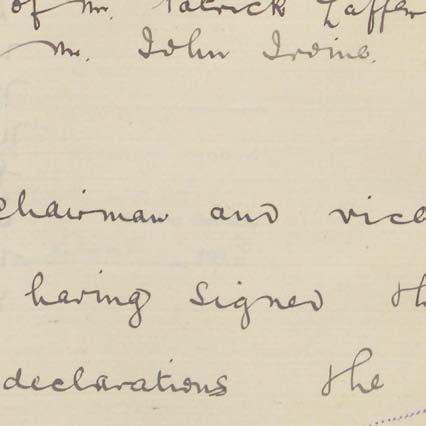 of Mr. Patrick Laffer
Mr. John Irvine.
chairman and vice
having signed th
declarations the